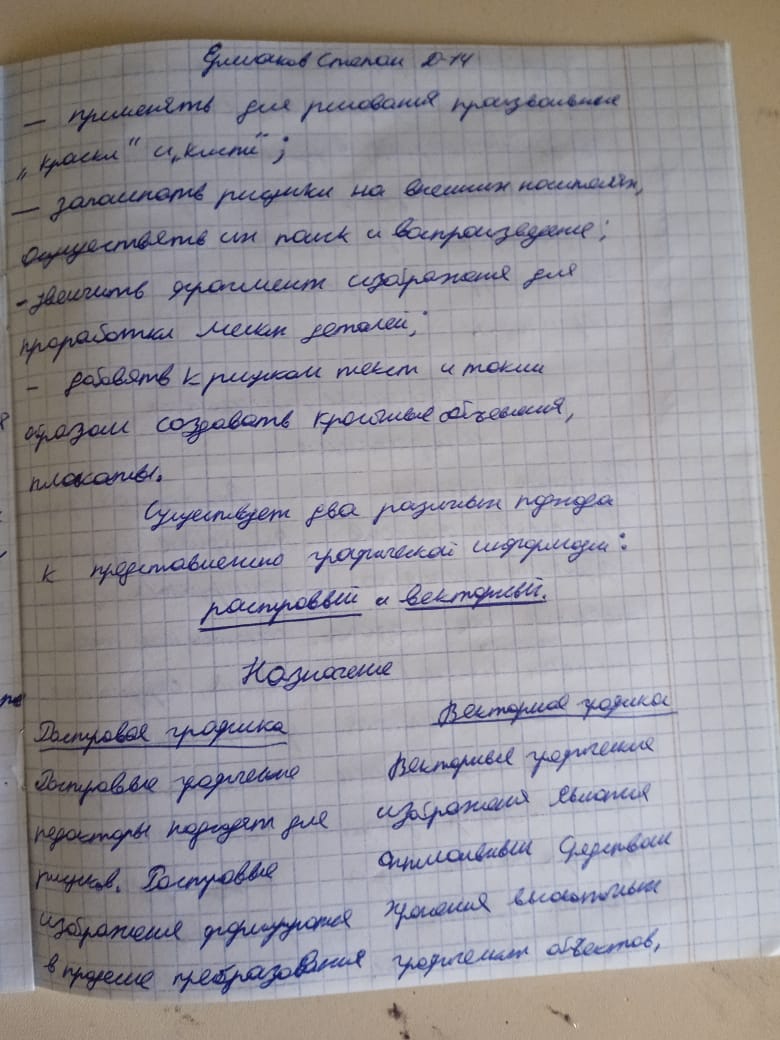 Ермаков Степан Д-14
— применять для рисования произвольные
„краски" и „кисти";
— запоминать рисунки на внешних носителях,
осуществять их поиск и воспроизведение;
- увеличить фрагмент изображения для
проработки мелких деталей;
- добавять к рисункам текст и таким
образом создавать красивые объевления,
плакаты.
Существует два различных подхода
к представлению графической информации:
растровый и векторный.
Назначение
Растровая графика
Векторная графика
Растровые графические
редакторы подходят для
рисунков. Растровые
изображения формируются
в процессе преобразования
Векторные графические
изображения являются
оптимальным средством
хранения высокоточных
графических объектов,